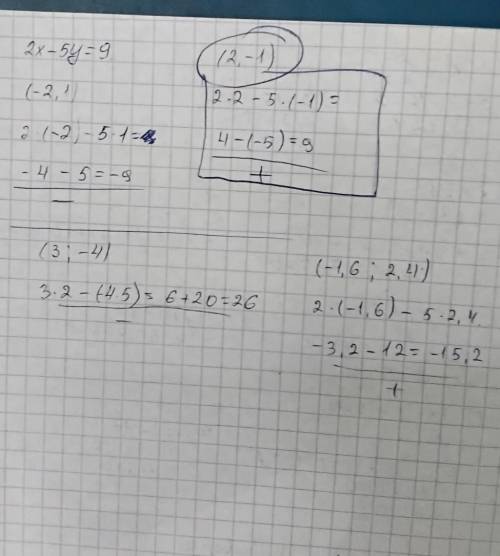 2x-5y=9
(-2,1)
2·(-2)-5·1=
-4-5=-9
—
(2,-1)
2·2-5·(-1)=
4-(-5)=9
+
(3;-4)
3·2-(4·5)=6+20=26
—
(-1,6; 2,4)
2·(-1,6)-5·2,4
-3,2-12=-15,2
+